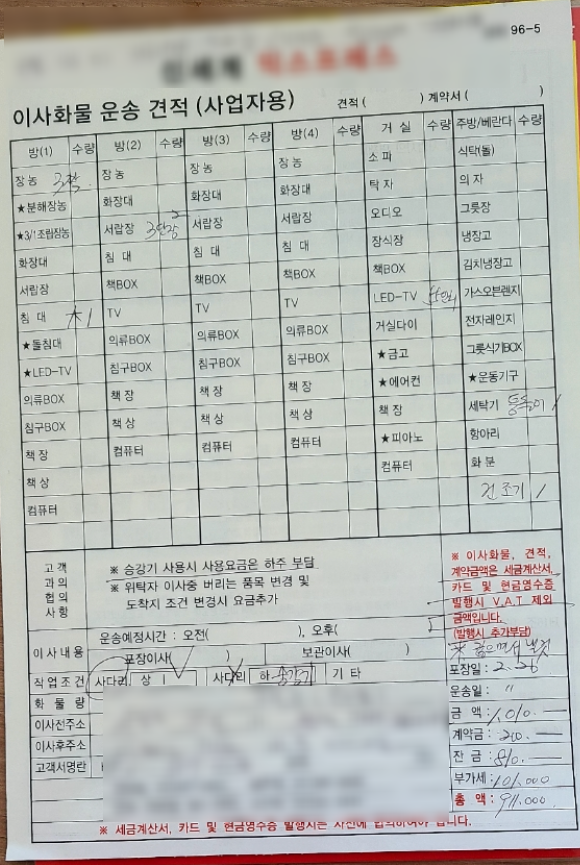 96-5
이사화물 운송 견적 (사업자용) 견적 ( ) 계약서 ( )
방(1) 수량 방(2) 수량 방(3) 수량 방(4) 수량 거 실 수량 주방/베란다 수량
장 농 장 농 장 농 장 농 소 파 식탁(돌)
★분해장농 화장대 화장대 화장대 탁 자 의 자
★3/1조립장농 서랍장 3단장 서랍장 서랍장 오디오 그릇장
화장대 침 대 침 대 침 대 장식장 냉장고
서랍장 책BOX 책BOX 책BOX 책BOX 김치냉장고
침 대 大1 TV TV TV LED-TV 가스오븐렌지
★돌침대 의류BOX 의류BOX 의류BOX 거실다이 전자레인지
★LED-TV 침구BOX 침구BOX 침구BOX ★금고 그릇식기BOX
의류BOX 책 장 책 장 책 장 ★에어컨 ★운동기구
침구BOX 책 상 책 상 책 상 책 장 세탁기 통돌이 1
책 장 컴퓨터 컴퓨터 컴퓨터 ★피아노 항아리
책 상 컴퓨터 화 분
컴퓨터 건조기 1
고객
과의
협의
사항
※ 승강기 사용시 사용요금은 하주 부담
※ 위탁자 이사중 버리는 품목 변경 및
도착지 조건 변경시 요금추가
※ 이사화물, 견적,
계약금액은 세금계산서,
카드 및 현금영수증
발행시 V.A.T 제외
금액입니다.
(발행시 추가부담)
이사내용 운송예정시간 : 오전( ), 오후(
포장이사( ) 보관이사( )
작업조건 사다리 상 1 사다리 하-승강기 기 타
화 물 량
이사전주소
이사후주소
고객서명란
포장일 : 2.26
운송일 : 〃
금 액 : 1,010.—
계약금 : 200.—
잔 금 : 810.—
부가세 : 101,000
총 액 : 911.000
※ 세금계산서, 카드 및 현금영수증 발행시는 사전에 협의하여야 합니다.